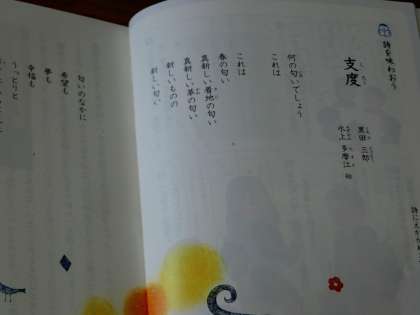 詩を味わおう
支度
したく
黒田 三郎
くろだ さぶろう
水上 多摩江 絵
何の匂いでしょう
これは
これは
春の匂い
真新しい着地の匂い
真新しい革の匂い
新しいものの
新しい匂い
匂いのなかに
希望も
夢も
幸福も
うっとりと